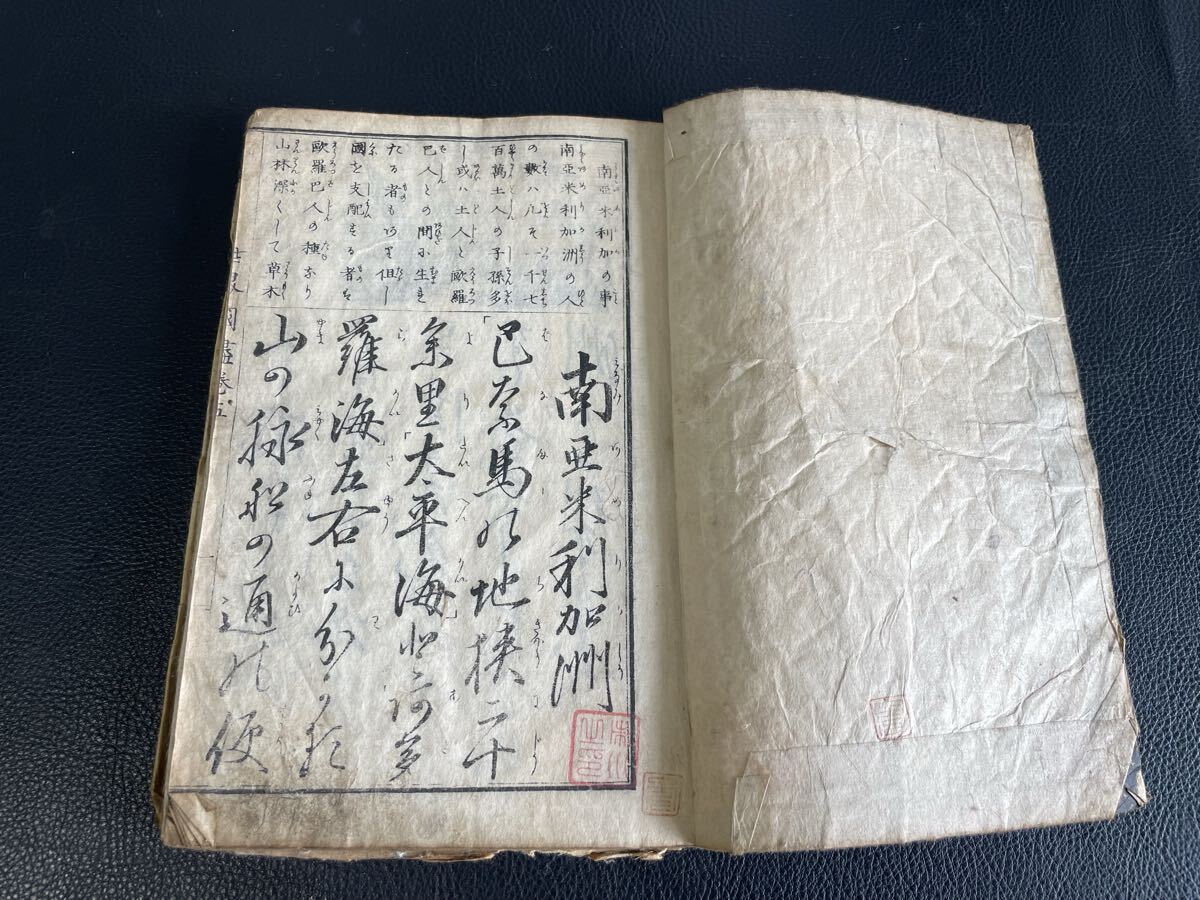 南亞米利加の事
南亞米利加洲の人
の數ハ凡そ一千七
百萬土人の子孫多
し或ハ土人と歐羅
巴人との間に生れ
たる者もあり但し
國を支配する者は
歐羅巴人の種なり
山林深くして草木
南亜米利加洲
「巴奈馬の地狹二十
余里「太平海」と「阿多
羅海」左右に分か
山の脉船の通の便
世界國盡巻五